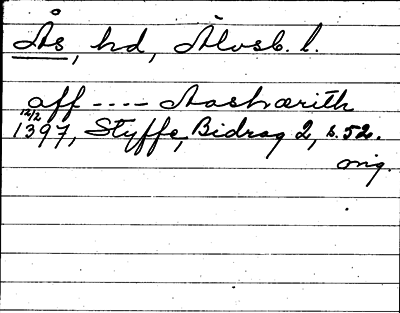 Ås, hd, Älvsb. l.
aff ---- Aashærith
12/2
1397, Styffe, Bidrag 2, s. 52.
orig.